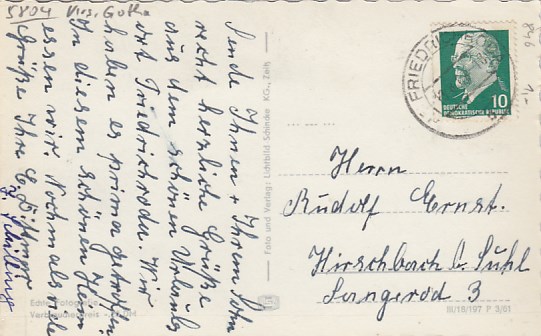 5804 Krs. Gotha
Sende Ihnen + Ihrem Sohn
recht herzliche Grüße
aus dem schönen Urlaubs
ort Friedrichroda. Wir
haben es prima getroffen
In diesem schönen Heim
essen wir. Nochmals viele
Grüße Ihre E.
Echte Fotografie
Foto und Verlag: Lichtbild-Schincke KG., Zeitz
FRIEDRICHRODA
DEUTSCHE
DEMOKRATISCHE REPUBLIK
10
846
1-
Herrn
Rudolf Ernst.
Hirschbach b. Suhl
Langerod 3
III/18/197 P 3/61